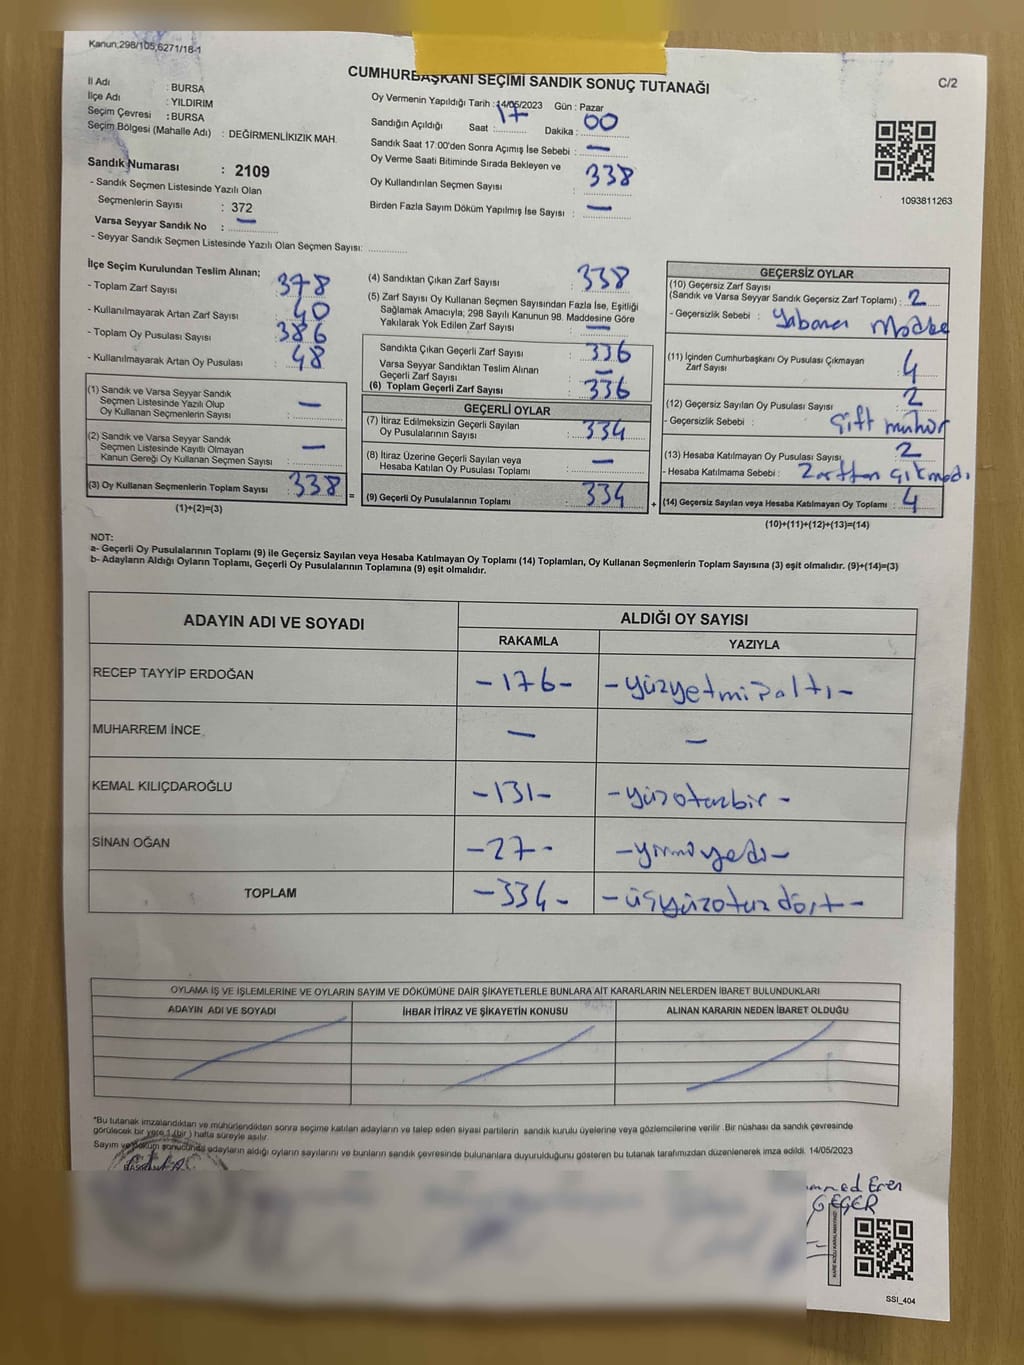 Kanun,298/105,6271/18-1
CUMHURBAŞKANI SEÇİMİ SANDIK SONUÇ TUTANAĞI
C/2
İl Adı : BURSA
İlçe Adı : YILDIRIM
Seçim Çevresi : BURSA
Seçim Bölgesi (Mahalle Adı) : DEĞİRMENLİKIZIK MAH.
Sandık Numarası : 2109
- Sandık Seçmen Listesinde Yazılı Olan
Seçmenlerin Sayısı : 372
Varsa Seyyar Sandık No : —
- Seyyar Sandık Seçmen Listesinde Yazılı Olan Seçmen Sayısı:
Oy Vermenin Yapıldığı Tarih : 14/05/2023 Gün : Pazar
Sandığın Açıldığı Saat : 17 Dakika : 00
Sandık Saat 17:00'den Sonra Açımış İse Sebebi : —
Oy Verme Saati Bitiminde Sırada Bekleyen ve
Oy Kullandırılan Seçmen Sayısı : 338
Birden Fazla Sayım Döküm Yapılmış İse Sayısı : —
1093811263
İlçe Seçim Kurulundan Teslim Alınan;
- Toplam Zarf Sayısı : 378
- Kullanılmayarak Artan Zarf Sayısı : 40
- Toplam Oy Pusulası Sayısı : 386
- Kullanılmayarak Artan Oy Pusulası : 48
(1) Sandık ve Varsa Seyyar Sandık
Seçmen Listesinde Yazılı Olup
Oy Kullanan Seçmenlerin Sayısı : —
(2) Sandık ve Varsa Seyyar Sandık
Seçmen Listesinde Kayıtlı Olmayan
Kanun Gereği Oy Kullanan Seçmen Sayısı : —
(3) Oy Kullanan Seçmenlerin Toplam Sayısı : 338
(1)+(2)=(3)
=
(4) Sandıktan Çıkan Zarf Sayısı : 338
(5) Zarf Sayısı Oy Kullanan Seçmen Sayısından Fazla İse, Eşitliği
Sağlamak Amacıyla; 298 Sayılı Kanunun 98. Maddesine Göre
Yakılarak Yok Edilen Zarf Sayısı : —
Sandıkta Çıkan Geçerli Zarf Sayısı : 336
Varsa Seyyar Sandıktan Teslim Alınan
Geçerli Zarf Sayısı : —
(6) Toplam Geçerli Zarf Sayısı : 336
GEÇERLİ OYLAR
(7) İtiraz Edilmeksizin Geçerli Sayılan
Oy Pusulalarının Sayısı : 334
(8) İtiraz Üzerine Geçerli Sayılan veya
Hesaba Katılan Oy Pusulası Toplamı : —
(9) Geçerli Oy Pusulalarının Toplamı : 334
+
GEÇERSİZ OYLAR
(10) Geçersiz Zarf Sayısı
(Sandık ve Varsa Seyyar Sandık Geçersiz Zarf Toplamı) : 2
- Geçersizlik Sebebi : Yabancı Madde
(11) İçinden Cumhurbaşkanı Oy Pusulası Çıkmayan
Zarf Sayısı : 4
(12) Geçersiz Sayılan Oy Pusulası Sayısı : 2
- Geçersizlik Sebebi : Çift mühür
(13) Hesaba Katılmayan Oy Pusulası Sayısı : 2
- Hesaba Katılmama Sebebi : Zarftan çıkmadı
(14) Geçersiz Sayılan veya Hesaba Katılmayan Oy Toplamı : 4
(10)+(11)+(12)+(13)=(14)
NOT:
a- Geçerli Oy Pusulalarının Toplamı (9) ile Geçersiz Sayılan veya Hesaba Katılmayan Oy Toplamı (14) Toplamları, Oy Kullanan Seçmenlerin Toplam Sayısına (3) eşit olmalıdır. (9)+(14)=(3)
b- Adayların Aldığı Oyların Toplamı, Geçerli Oy Pusulalarının Toplamına (9) eşit olmalıdır.
ADAYIN ADI VE SOYADI
ALDIĞI OY SAYISI
RAKAMLA YAZIYLA
RECEP TAYYİP ERDOĞAN -176- -yüzyetmişaltı-
MUHARREM İNCE — —
KEMAL KILIÇDAROĞLU -131- -yüzotuzbir-
SİNAN OĞAN -27- -yirmiyedi-
TOPLAM -334- -üçyüzotuzdört-
OYLAMA İŞ VE İŞLEMLERİNE VE OYLARIN SAYIM VE DÖKÜMÜNE DAİR ŞİKAYETLERLE BUNLARA AİT KARARLARIN NELERDEN İBARET BULUNDUKLARI
ADAYIN ADI VE SOYADI İHBAR İTİRAZ VE ŞİKAYETİN KONUSU ALINAN KARARIN NEDEN İBARET OLDUĞU
*Bu tutanak imzalandıktan ve mühürlendikten sonra seçime katılan adayların ve talep eden siyasi partilerin sandık kurulu üyelerine veya gözlemcilerine verilir. Bir nüshası da sandık çevresinde
görülecek bir yere 1 (bir) hafta süreyle asılır.
Sayım ve döküm sonucunda adayların aldığı oyların sayılarını ve bunların sandık çevresinde bulunanlara duyurulduğunu gösteren bu tutanak tarafımızdan düzenlenerek imza edildi. 14/05/2023
Eren
GEÇER
SSI_404